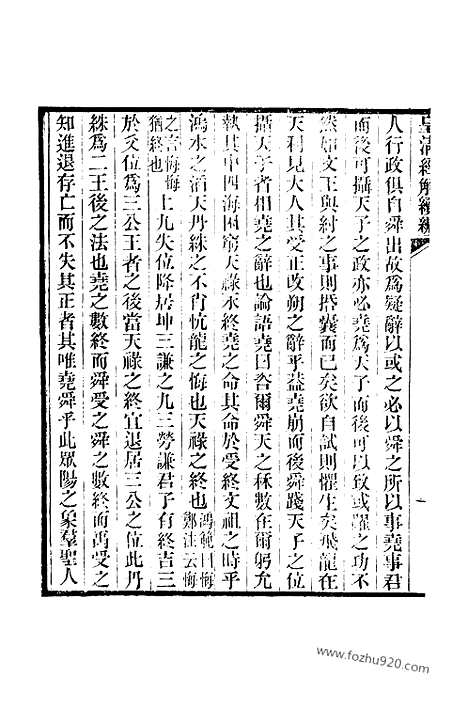 皇清經解續編
人行政俱自舜出故爲疑辭以或之必以舜之所以事堯事君
而後可攝天子之政亦必堯爲天子而後可以致或躍之功不
然如文王與紂之事則括囊而已矣欲自試則懼生矣飛龍在
天利見大人其受正改朔之辭乎蓋堯崩而後舜踐天子之位
攝天子者相堯之辭也論語堯曰咨爾舜天之秝數在爾躬允
執其中四海困窮天祿永終堯之命其命於受終文祖之時乎
鴻水之滔天丹絑之不肖忼龍之悔也天祿之終也鴻範曰悔鄭注云悔
之言悔悔猶終也上九失位降居坤三謙之九三勞謙君子有終吉三
於爻位爲三公王者之後當天祿之終宜退居三公之位此丹
絑爲二王後之法也堯之數終而舜受之舜之數終而禹受之
知進退存亡而不失其正者其唯堯舜乎此眾陽之象羣聖人
www.fozhu920.com